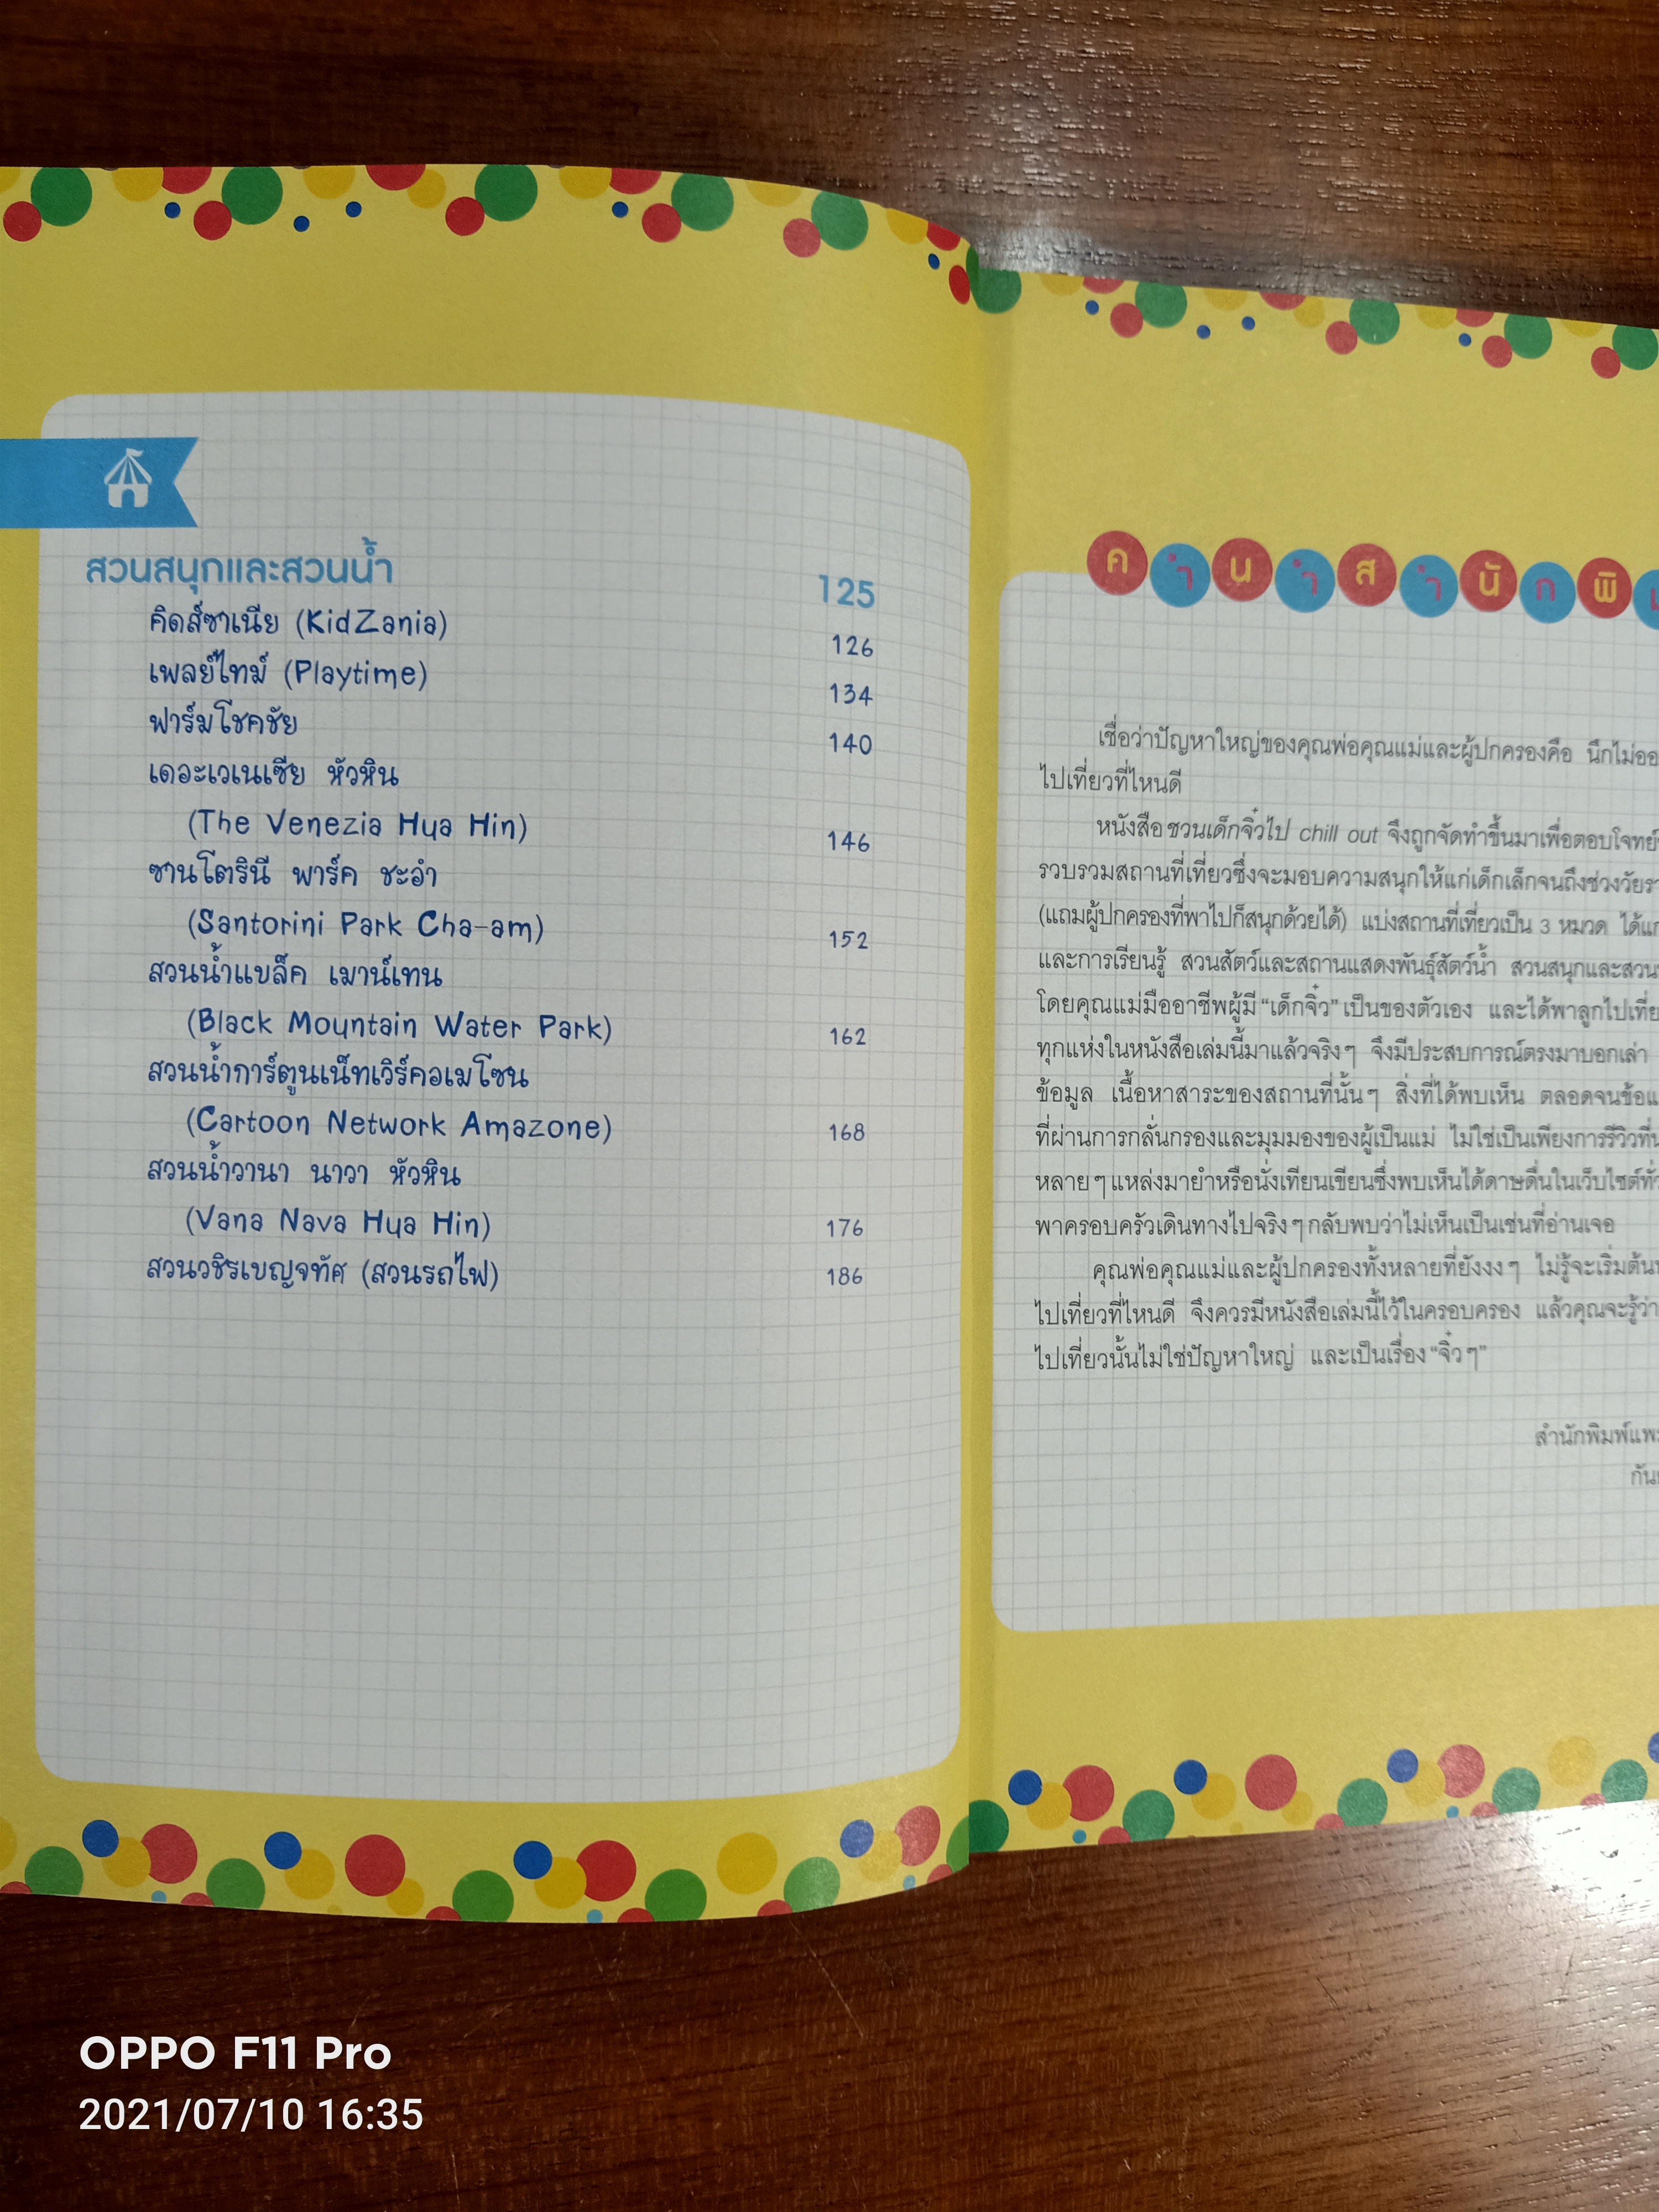 สวนสนุกและสวนน้ำ 125
คิดส์ซาเนีย (KidZania) 126
เพลย์ไทม์ (Playtime) 134
ฟาร์มโชคชัย 140
เดอะเวเนเซีย หัวหิน
(The Venezia Hua Hin) 146
ซานโตรินี พาร์ค ชะอำ
(Santorini Park Cha-am) 152
สวนน้ำแบล็ค เมาน์เทน
(Black Mountain Water Park) 162
สวนน้ำการ์ตูนเน็ทเวิร์คอเมโซน
(Cartoon Network Amazone) 168
สวนน้ำวานา นาวา หัวหิน
(Vana Nava Hua Hin) 176
สวนวชิรเบญจทัศ (สวนรถไฟ) 186
คำนำสำนักพิ
เชื่อว่าปัญหาใหญ่ของคุณพ่อคุณแม่และผู้ปกครองคือ นึกไม่ออ
ไปเที่ยวที่ไหนดี
หนังสือชวนเด็กจิ๋วไป chill out จึงถูกจัดทำขึ้นมาเพื่อตอบโจทย์
รวบรวมสถานที่เที่ยวซึ่งจะมอบความสนุกให้แก่เด็กเล็กจนถึงช่วงวัยร
(แถมผู้ปกครองที่พาไปก็สนุกด้วยได้) แบ่งสถานที่เที่ยวเป็น 3 หมวด ได้แก่
และการเรียนรู้ สวนสัตว์และสถานแสดงพันธุ์สัตว์น้ำ สวนสนุกและสวน
โดยคุณแม่มืออาชีพผู้มี “เด็กจิ๋ว” เป็นของตัวเอง และได้พาลูกไปเที่ย
ทุกแห่งในหนังสือเล่มนี้มาแล้วจริงๆ จึงมีประสบการณ์ตรงมาบอกเล่า
ข้อมูล เนื้อหาสาระของสถานที่นั้นๆ สิ่งที่ได้พบเห็น ตลอดจนข้อแ
ที่ผ่านการกลั่นกรองและมุมมองของผู้เป็นแม่ ไม่ใช่เป็นเพียงการรีวิวที่
หลายๆ แหล่งมายำหรือนั่งเทียนเขียนซึ่งพบเห็นได้ดาษดื่นในเว็บไซต์ทั่ว
พาครอบครัวเดินทางไปจริงๆ กลับพบว่าไม่เห็นเป็นเช่นที่อ่านเจอ
คุณพ่อคุณแม่และผู้ปกครองทั้งหลายที่ยังงงๆ ไม่รู้จะเริ่มต้น
ไปเที่ยวที่ไหนดี จึงควรมีหนังสือเล่มนี้ไว้ในครอบครอง แล้วคุณจะรู้ว่า
ไปเที่ยวนั้นไม่ใช่ปัญหาใหญ่ และเป็นเรื่อง “จิ๋วๆ”
สำนักพิมพ์แพ
กัน
OPPO F11 Pro
2021/07/10 16:35